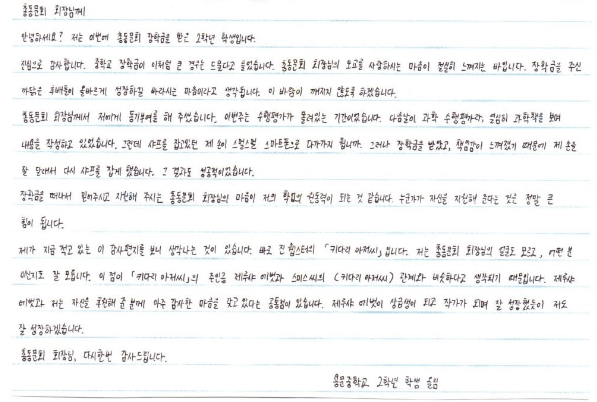 총동문회 회장님께
안녕하세요? 저는 이번에 총동문회 장학금을 받은 2학년 학생입니다.
진심으로 감사합니다. 중학교 장학금이 이처럼 큰 경우는 드물다고 들었습니다. 총동문회 회장님의 모교를 사랑하시는 마음이 절실히 느껴지는 바입니다. 장학금을 주신
까닭은 후배들이 올바르게 성장하길 바라시는 마음이라고 생각됩니다. 이 바람이 깨지지 않도록 하겠습니다.
총동문회 회장님께서 저에게 동기부여를 해 주셨습니다. 이번주는 수행평가가 몰려있는 기간이었습니다. 다음날이 과학 수행평가라, 열심히 과학책을 보며
내용을 작성하고 있었습니다. 그런데 샤프를 잡고있던 제 손이 스멀스멀 스마트폰으로 다가가지 뭡니까. 그러나 장학금을 받았고, 책임감이 느껴졌기 때문에 제 손을
잘 달래서 다시 샤프를 잡게 했습니다. 그 결과도 성공적이었습니다.
장학금을 떠나서 믿어주시고 지원해 주시는 총동문회 회장님의 마음이 저의 학업의 원동력이 되는 것 같습니다. 누군가가 자신을 지원해 준다는 것은 정말 큰
힘이 됩니다.
제가 지금 적고 있는 이 감사편지를 보니 생각나는 것이 있습니다. 바로 진 웹스터의 「키다리 아저씨」입니다. 저는 총동문회 회장님의 얼굴도 모르고, 어떤 분
이신지도 잘 모릅니다. 이 점이 「키다리 아저씨」의 주인공 제루샤 에벗과 스미스씨의 (키다리 아저씨) 관계와 비슷하다고 생각되기 때문입니다. 제루샤
에벗과 저는 자신을 후원해 준 분께 아주 감사한 마음을 갖고있다는 공통점이 있습니다. 제루샤 에벗이 상금생이 되고 작가가 되며 잘 성장했듯이 저도
잘 성장하겠습니다.
총동문회 회장님, 다시한번 감사드립니다.
용문중학교 2학년 학생 올림